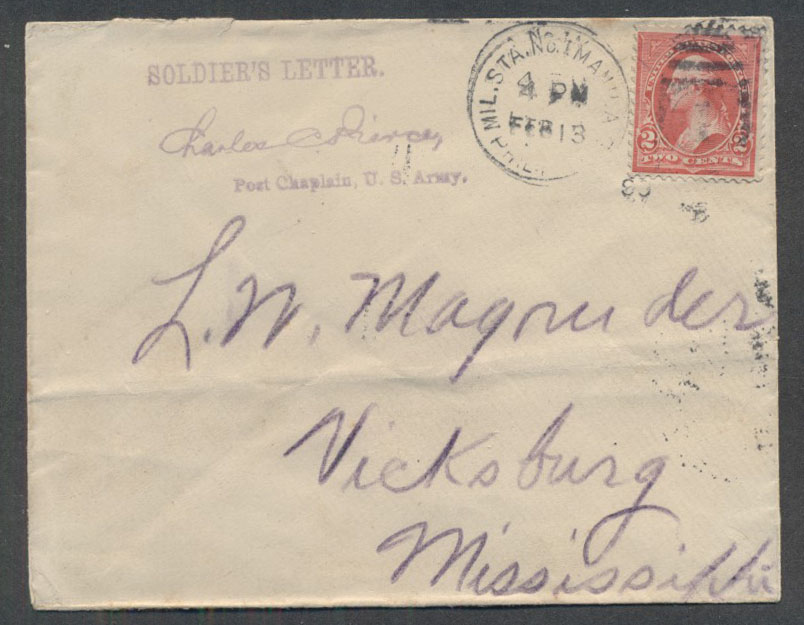 SOLDIER'S LETTER.
Charles C. Pierce,
Post Chaplain, U. S. Army.
MIL. STA. No. 1 MANILA
4 PM
FEB 13
2 2
TWO CENTS
L. W. Magruder
Vicksburg
Mississippi